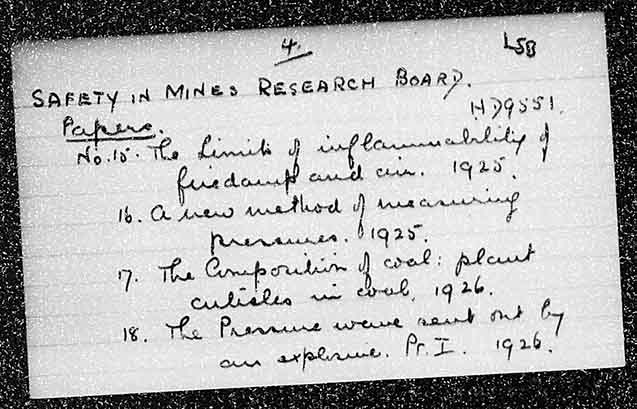 4.
L5B
SAFETY IN MINES RESEARCH BOARD.
HD9551.
Papers.
No. 15. The Limits of inflammability of
firedamp and air. 1925.
16. A new method of measuring
pressures. 1925.
17. The Composition of coal: plant
cuticles in coal. 1926.
18. The Pressure wave sent out by
an explosive. Pt. I. 1926.